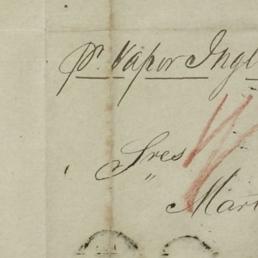 pr. Vapor Ingl
Sres
Mart